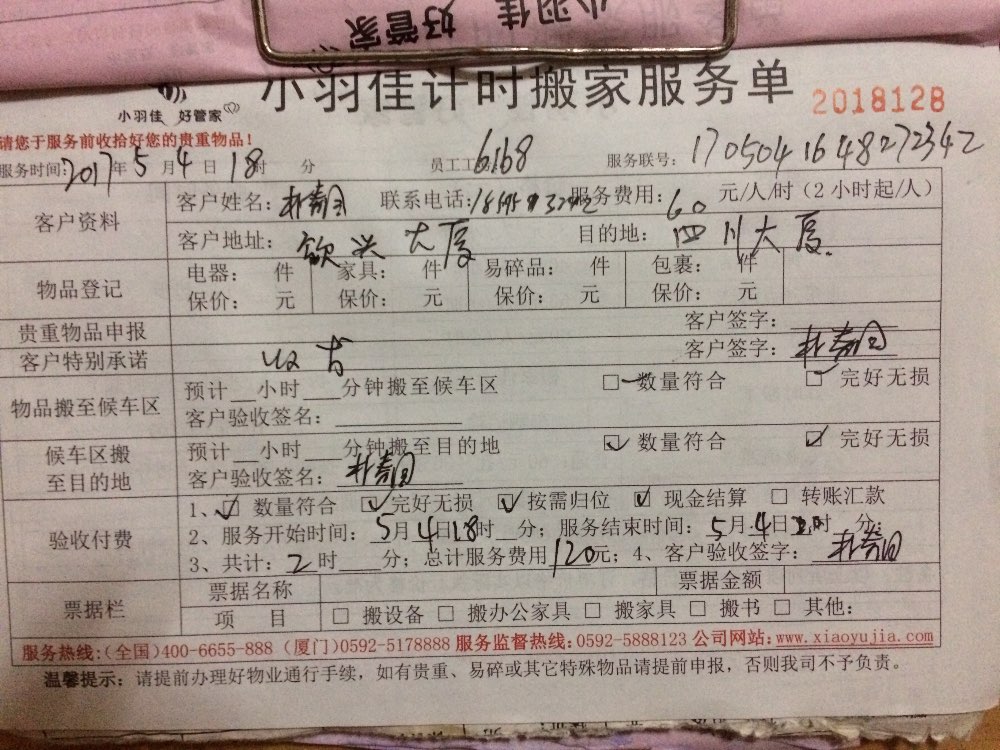 小羽佳 好管家
小羽佳 好管家
小羽佳计时搬家服务单
2018128
请您于服务前收拾好您的贵重物品!
服务时间: 2017年5月4日18时 分 员工工 6168 服务联号: 1705041648272342
客户资料 客户姓名: 联系电话: 服务费用: 60 元/人/时(2小时起/人)
客户地址: 钦兴大厦 目的地: 四川大厦
物品登记 电器: 件 家具: 件 易碎品: 件 包裹: 件
保价: 元 保价: 元 保价: 元 保价: 元
贵重物品申报 客户签字:
客户特别承诺 客户签字:
物品搬至候车区 预计__小时___分钟搬至候车区 □ 数量符合 □ 完好无损
客户验收签名:
候车区搬至目的地 预计__小时___分钟搬至目的地 ☑ 数量符合 ☑ 完好无损
客户验收签名:
验收付费 1、☑ 数量符合 ☑ 完好无损 ☑ 按需归位 ☑ 现金结算 □ 转账汇款
2、服务开始时间: 5月4日18时__分; 服务结束时间: 5月4日 时 分;
3、共计: 2时___分; 总计服务费用120元; 4、客户验收签字:
票据栏 票据名称 票据金额
项 目 □ 搬设备 □ 搬办公家具 □ 搬家具 □ 搬书 □ 其他:
服务热线:(全国)400-6655-888 (厦门)0592-5178888 服务监督热线:0592-5888123 公司网站:www.xiaoyujia.com
温馨提示: 请提前办理好物业通行手续,如有贵重、易碎或其它特殊物品请提前申报,否则我司不予负责。